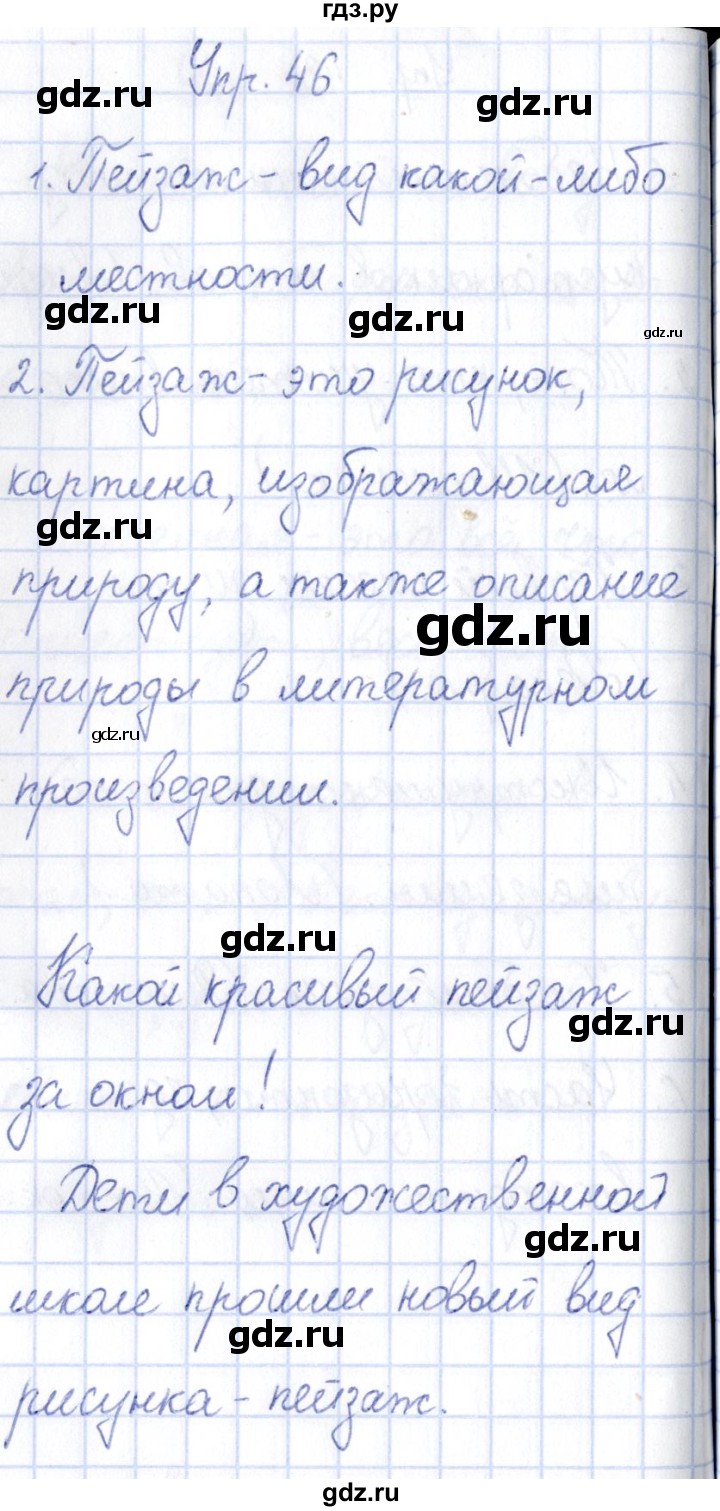 гдз.ру
Упр. 46
gdz.ru
gdz.ru
1. Пейзаж - вид какой-либо
местности.
gdz.ru
gdz.ru
gdz.ru
2. Пейзаж - это рисунок,
картина, изображающая
gdz.ru
природу, а также описание
gdz.ru
природы в литературном
gdz.ru
произведении.
gdz.ru
Какой красивый пейзаж
gdz.ru
за окном!
Дети в художественной
gdz.ru
школе прошли новый вид
gdz.ru
рисунка - пейзаж.
гдз.ру